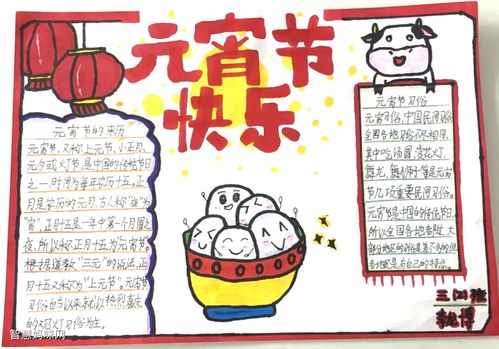 元宵节
快乐
元宵节的来历
元宵节,又称上元节、小正月、
元夕或灯节,是中国的传统节日
之一,时间为每年农历十五。正
月是农历的元月,古人称"夜"为
"宵",正月十五是一年中第一个月圆之
夜,所以称正月十五为元宵节。
根据道教"三元"的说法,正
月十五又称为"上元节"。元宵节
习俗自古以来就以热烈喜庆
的观灯习俗为主。
元宵节习俗
元宵习俗,中国民间习俗
全国各地习俗不尽相同,
其中吃汤圆、赏花灯、
舞龙、舞狮子等是元宵
节几项重要民间习俗。
元宵节是中国的传统节日,
所以全国各地者过,大
部分地区的习俗是差不多的,但
各地还是有自己的特点。
三(2)班
智慧妈咪网